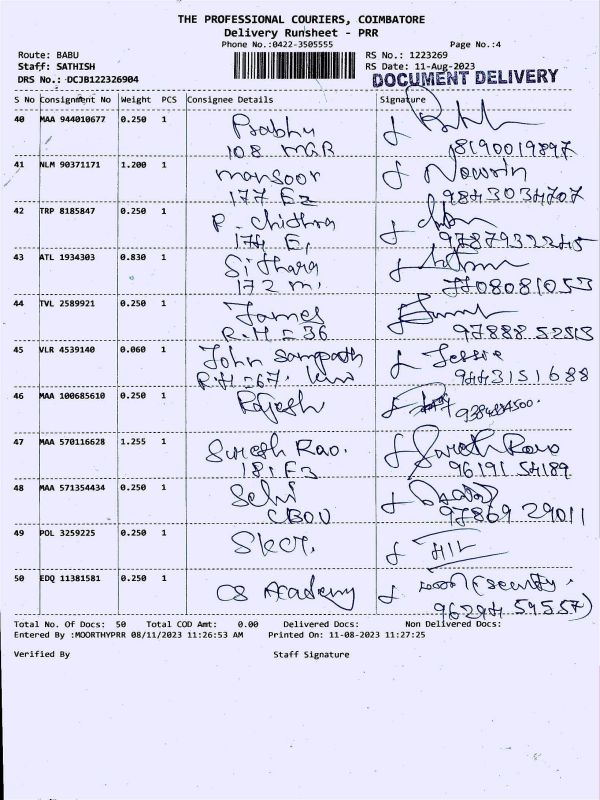 THE PROFESSIONAL COURIERS, COIMBATORE
Delivery Runsheet - PRR
Phone No.:0422-3505555 Page No.:4
Route: BABU RS No.: 1223269
Staff: SATHISH RS Date: 11-Aug-2023
DRS No.: DCJB122326904 DOCUMENT DELIVERY
S No Consignment No Weight PCS Consignee Details Signature
40 MAA 944010677 0.250 1 Prabhu
108 MGR 8190019897
41 NLM 90371171 1.200 1 mansoor
177 E2 9843034707
42 TRP 8185847 0.250 1 P. Chithra
174 E, 9787932245
43 ATL 1934303 0.830 1 Sithara
172 m. 7708081053
44 TVL 2589921 0.250 1 James
R.H=36 97888 52513
45 VLR 4539140 0.060 1 John Sampath Jessie
R.H=67. 9443151688
46 MAA 100685610 0.250 1 Rajesh
47 MAA 570116628 1.255 1 Suresh Rao. Suresh Rao
181 E3 96191 54189
48 MAA 571354434 0.250 1 Selvi
CBOU 97869 29011
49 POL 3259225 0.250 1 SKCT.
50 EDQ 11381581 0.250 1 CS Academy (security.
96294 59557)
Total No. Of Docs: 50 Total COD Amt: 0.00 Delivered Docs: Non Delivered Docs:
Entered By :MOORTHYPRR 08/11/2023 11:26:53 AM Printed On: 11-08-2023 11:27:25
Verified By Staff Signature